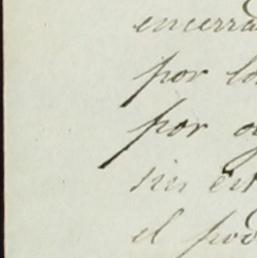 encerra
por lo
por
sin
el pod